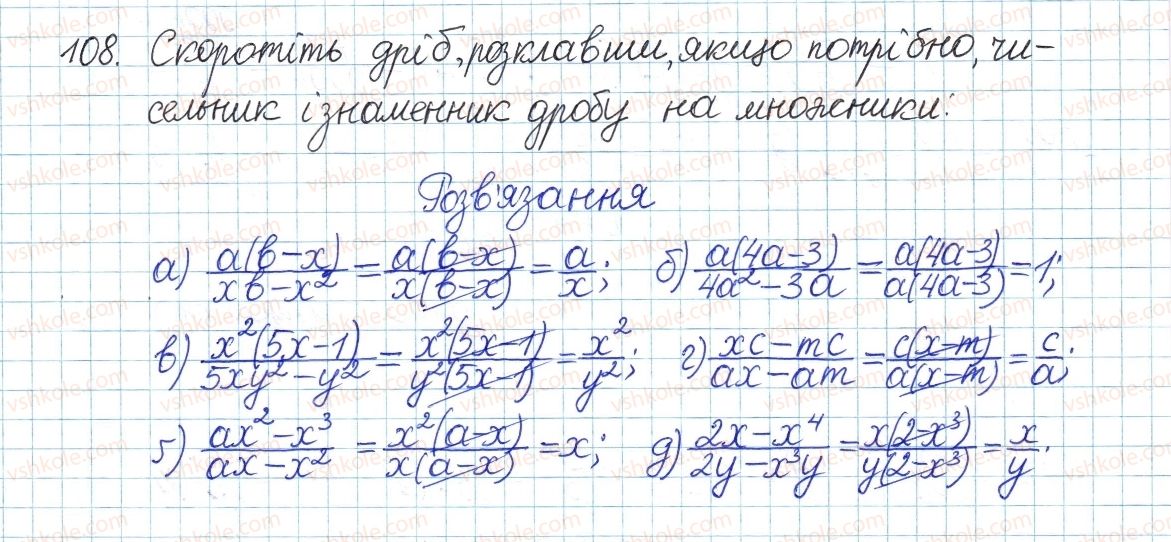 108. Скоротіть дріб, розклавши, якщо потрібно, чи-
сельник і знаменник дробу на множники:
Розв'язання
а) a(b-x)/(xb-x²) = a(b-x)/(x(b-x)) = a/x; б) a(4a-3)/(4a²-3a) = a(4a-3)/(a(4a-3)) = 1;
в) x²(5x-1)/(5xy²-y²) = x²(5x-1)/(y²(5x-1)) = x²/y²; г) (xc-mc)/(ax-am) = c(x-m)/(a(x-m)) = c/a;
ґ) (ax²-x³)/(ax-x²) = x²(a-x)/(x(a-x)) = x; д) (2x-x⁴)/(2y-x³y) = x(2-x³)/(y(2-x³)) = x/y.